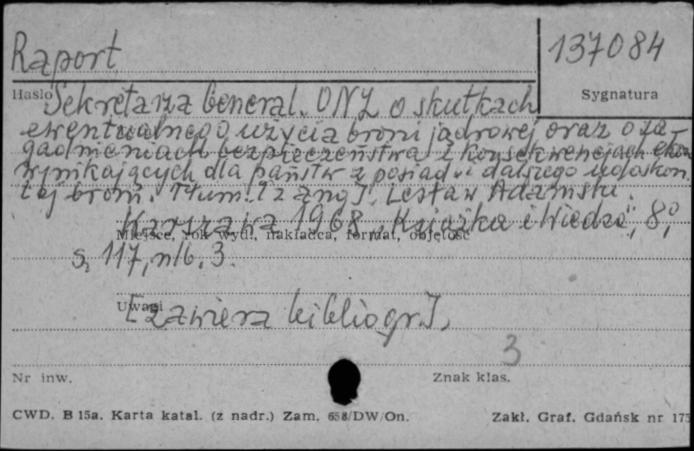 Raport
137084
Hasło
Sygnatura
Sekretarza General. ONZ o skutkach
ewentualnego użycia broni jądrowej oraz o za-
gadnieniach bezpieczeństwa i konsekwencjach ekon.
wynikających dla państw z posiad. i dalszego udoskon.
tej broni. Tłum. [z ang.]. Lesław Adamski.
Warszawa 1968 "Książka i Wiedza", 8°,
Miejsce, rok wyd., nakładca, format, objętość
s. 117, nlb. 3.
Uwagi
[Zawiera bibliogr.].
3
Nr inw.
Znak klas.
CWD. B 15a. Karta katal. (z nadr.) Zam. 658/DW/On.
Zakł. Graf. Gdańsk nr 175